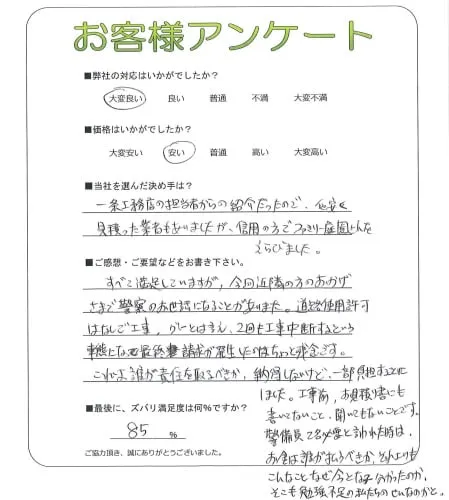 お客様アンケート
■弊社の対応はいかがでしたか?
大変良い 良い 普通 不満 大変不満
■価格はいかがでしたか?
大変安い 安い 普通 高い 大変高い
■当社を選んだ決め手は?
一条工務店の担当者からの紹介だったので、他安く
見積った業者もありましたが、信用の方でファミリー庭園さんを
えらびました。
■ご感想・ご要望などをお書き下さい。
すべて満足していますが、今回近隣の方のおかげ
さまで警察のお世話になることがありました。道路使用許可
はなしで工事、 とはいえ、2回も工事中断するという
事態になって最終 請求が発生したのはちょっと残念です。
これは誰が責任を取るべきか、納得しないけど、一部負担することに
しました。工事前、お見積り書にも
書いてないこと、聞いてもないことです。
警備員 名必要と言われた時は、
お金は誰が払うべきか、それよりも
こんなことなぜ今となって分かったのか、
そこも勉強不足の私たちのせいなのかと。
■最後に、ズバリ満足度は何%ですか?
85 %
ご協力頂き、誠にありがとうございました。